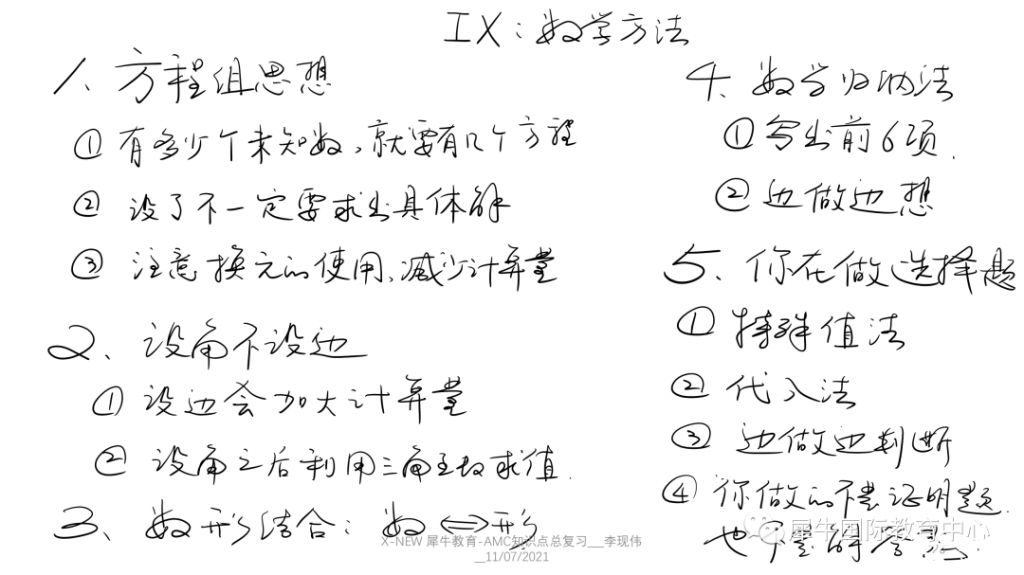 IX：数学方法
1、方程组思想
① 有多少个未知数，就要有几个方程
② 设了不一定要求出具体解
③ 注意换元的使用、减少计算量
2、设角不设边
① 设边会加大计算量
② 设角之后利用三角函数求值.
3、数形结合：数⇔形
4、数学归纳法
① 写出前6项.
② 边做边想
5、你在做选择题
① 特殊值法
② 代入法
③ 边做边判断
④ 你做的不是证明题.
也不是解答题.
X-NEW 犀牛教育-AMC知识点总复习__李现伟
__11/07/2021
犀牛国际教育中心